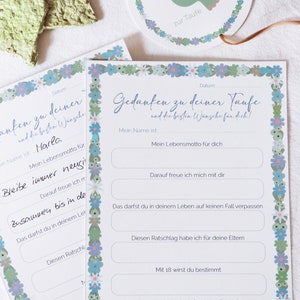 zur Taufe
Datum:
Gedanken zu deiner Taufe
und die besten Wünsche für dich!
Mein Name ist:
Mein Lebensmotto für dich
Darauf freue ich mich mit dir
Das darfst du in deinem Leben auf keinen Fall verpassen
Diesen Ratschlag habe ich für deine Eltern
Mit 18 wirst du bestimmt
Datum:
danken zu deiner
und die besten Wünsche
Mein Name ist:
Marla
Mein Lebensmotto für
Bleibe immer neug
Darauf freue ich mich
zusammen bis in de
Das darfst du in deinem Leben
Diesen Ratschlag habe ich
Mit 18 wirst